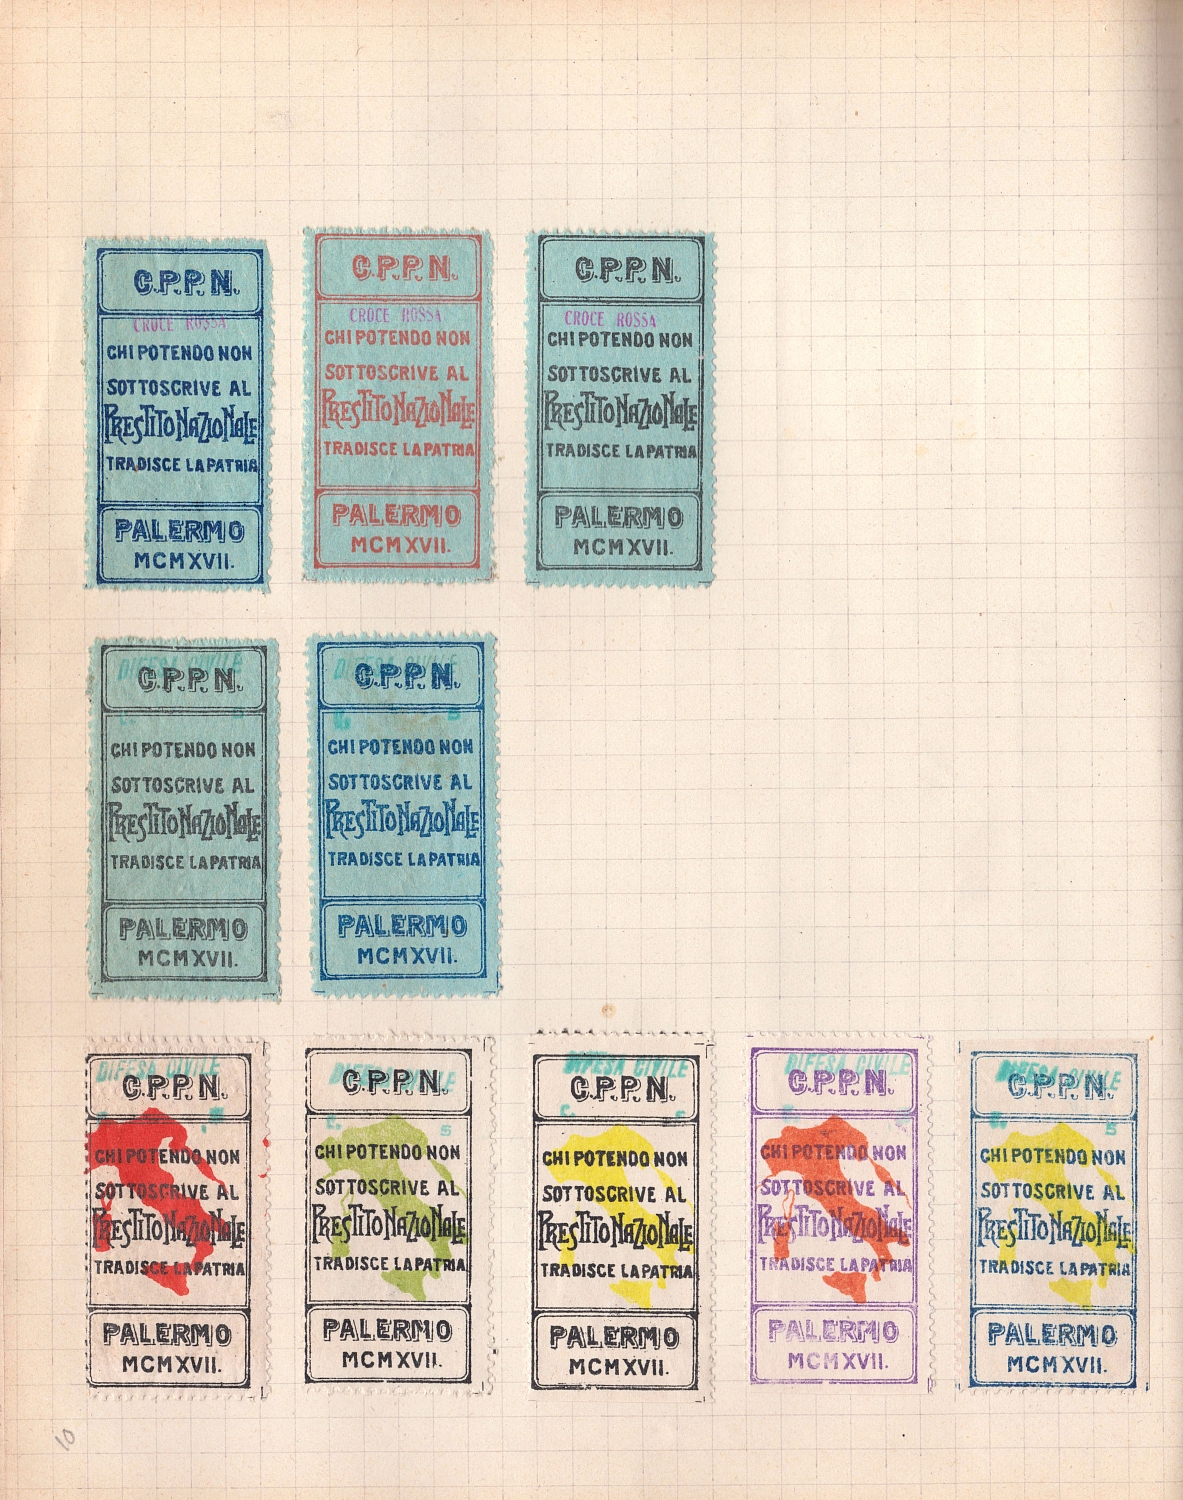 C.P.P.N.
CROCE ROSSA
CHI POTENDO NON
SOTTOSCRIVE AL
PRESTITO NAZIONALE
TRADISCE LA PATRIA
PALERMO
MCMXVII.
C.P.P.N.
CROCE ROSSA
CHI POTENDO NON
SOTTOSCRIVE AL
PRESTITO NAZIONALE
TRADISCE LA PATRIA
PALERMO
MCMXVII.
C.P.P.N.
CROCE ROSSA
CHI POTENDO NON
SOTTOSCRIVE AL
PRESTITO NAZIONALE
TRADISCE LA PATRIA
PALERMO
MCMXVII.
DIFESA CIVILE
C.P.P.N.
C. 5
CHI POTENDO NON
SOTTOSCRIVE AL
PRESTITO NAZIONALE
TRADISCE LA PATRIA
PALERMO
MCMXVII.
DIFESA CIVILE
C.P.P.N.
C. 5
CHI POTENDO NON
SOTTOSCRIVE AL
PRESTITO NAZIONALE
TRADISCE LA PATRIA
PALERMO
MCMXVII.
DIFESA CIVILE
C.P.P.N.
CHI POTENDO NON
SOTTOSCRIVE AL
PRESTITO NAZIONALE
TRADISCE LA PATRIA
PALERMO
MCMXVII.
DIFESA CIVILE
C.P.P.N.
C. 5
CHI POTENDO NON
SOTTOSCRIVE AL
PRESTITO NAZIONALE
TRADISCE LA PATRIA
PALERMO
MCMXVII.
DIFESA CIVILE
C.P.P.N.
C. 5
CHI POTENDO NON
SOTTOSCRIVE AL
PRESTITO NAZIONALE
TRADISCE LA PATRIA
PALERMO
MCMXVII.
DIFESA CIVILE
C.P.P.N.
CHI POTENDO NON
SOTTOSCRIVE AL
PRESTITO NAZIONALE
TRADISCE LA PATRIA
PALERMO
MCMXVII.
DIFESA CIVILE
C.P.P.N.
C. 5
CHI POTENDO NON
SOTTOSCRIVE AL
PRESTITO NAZIONALE
TRADISCE LA PATRIA
PALERMO
MCMXVII.
10